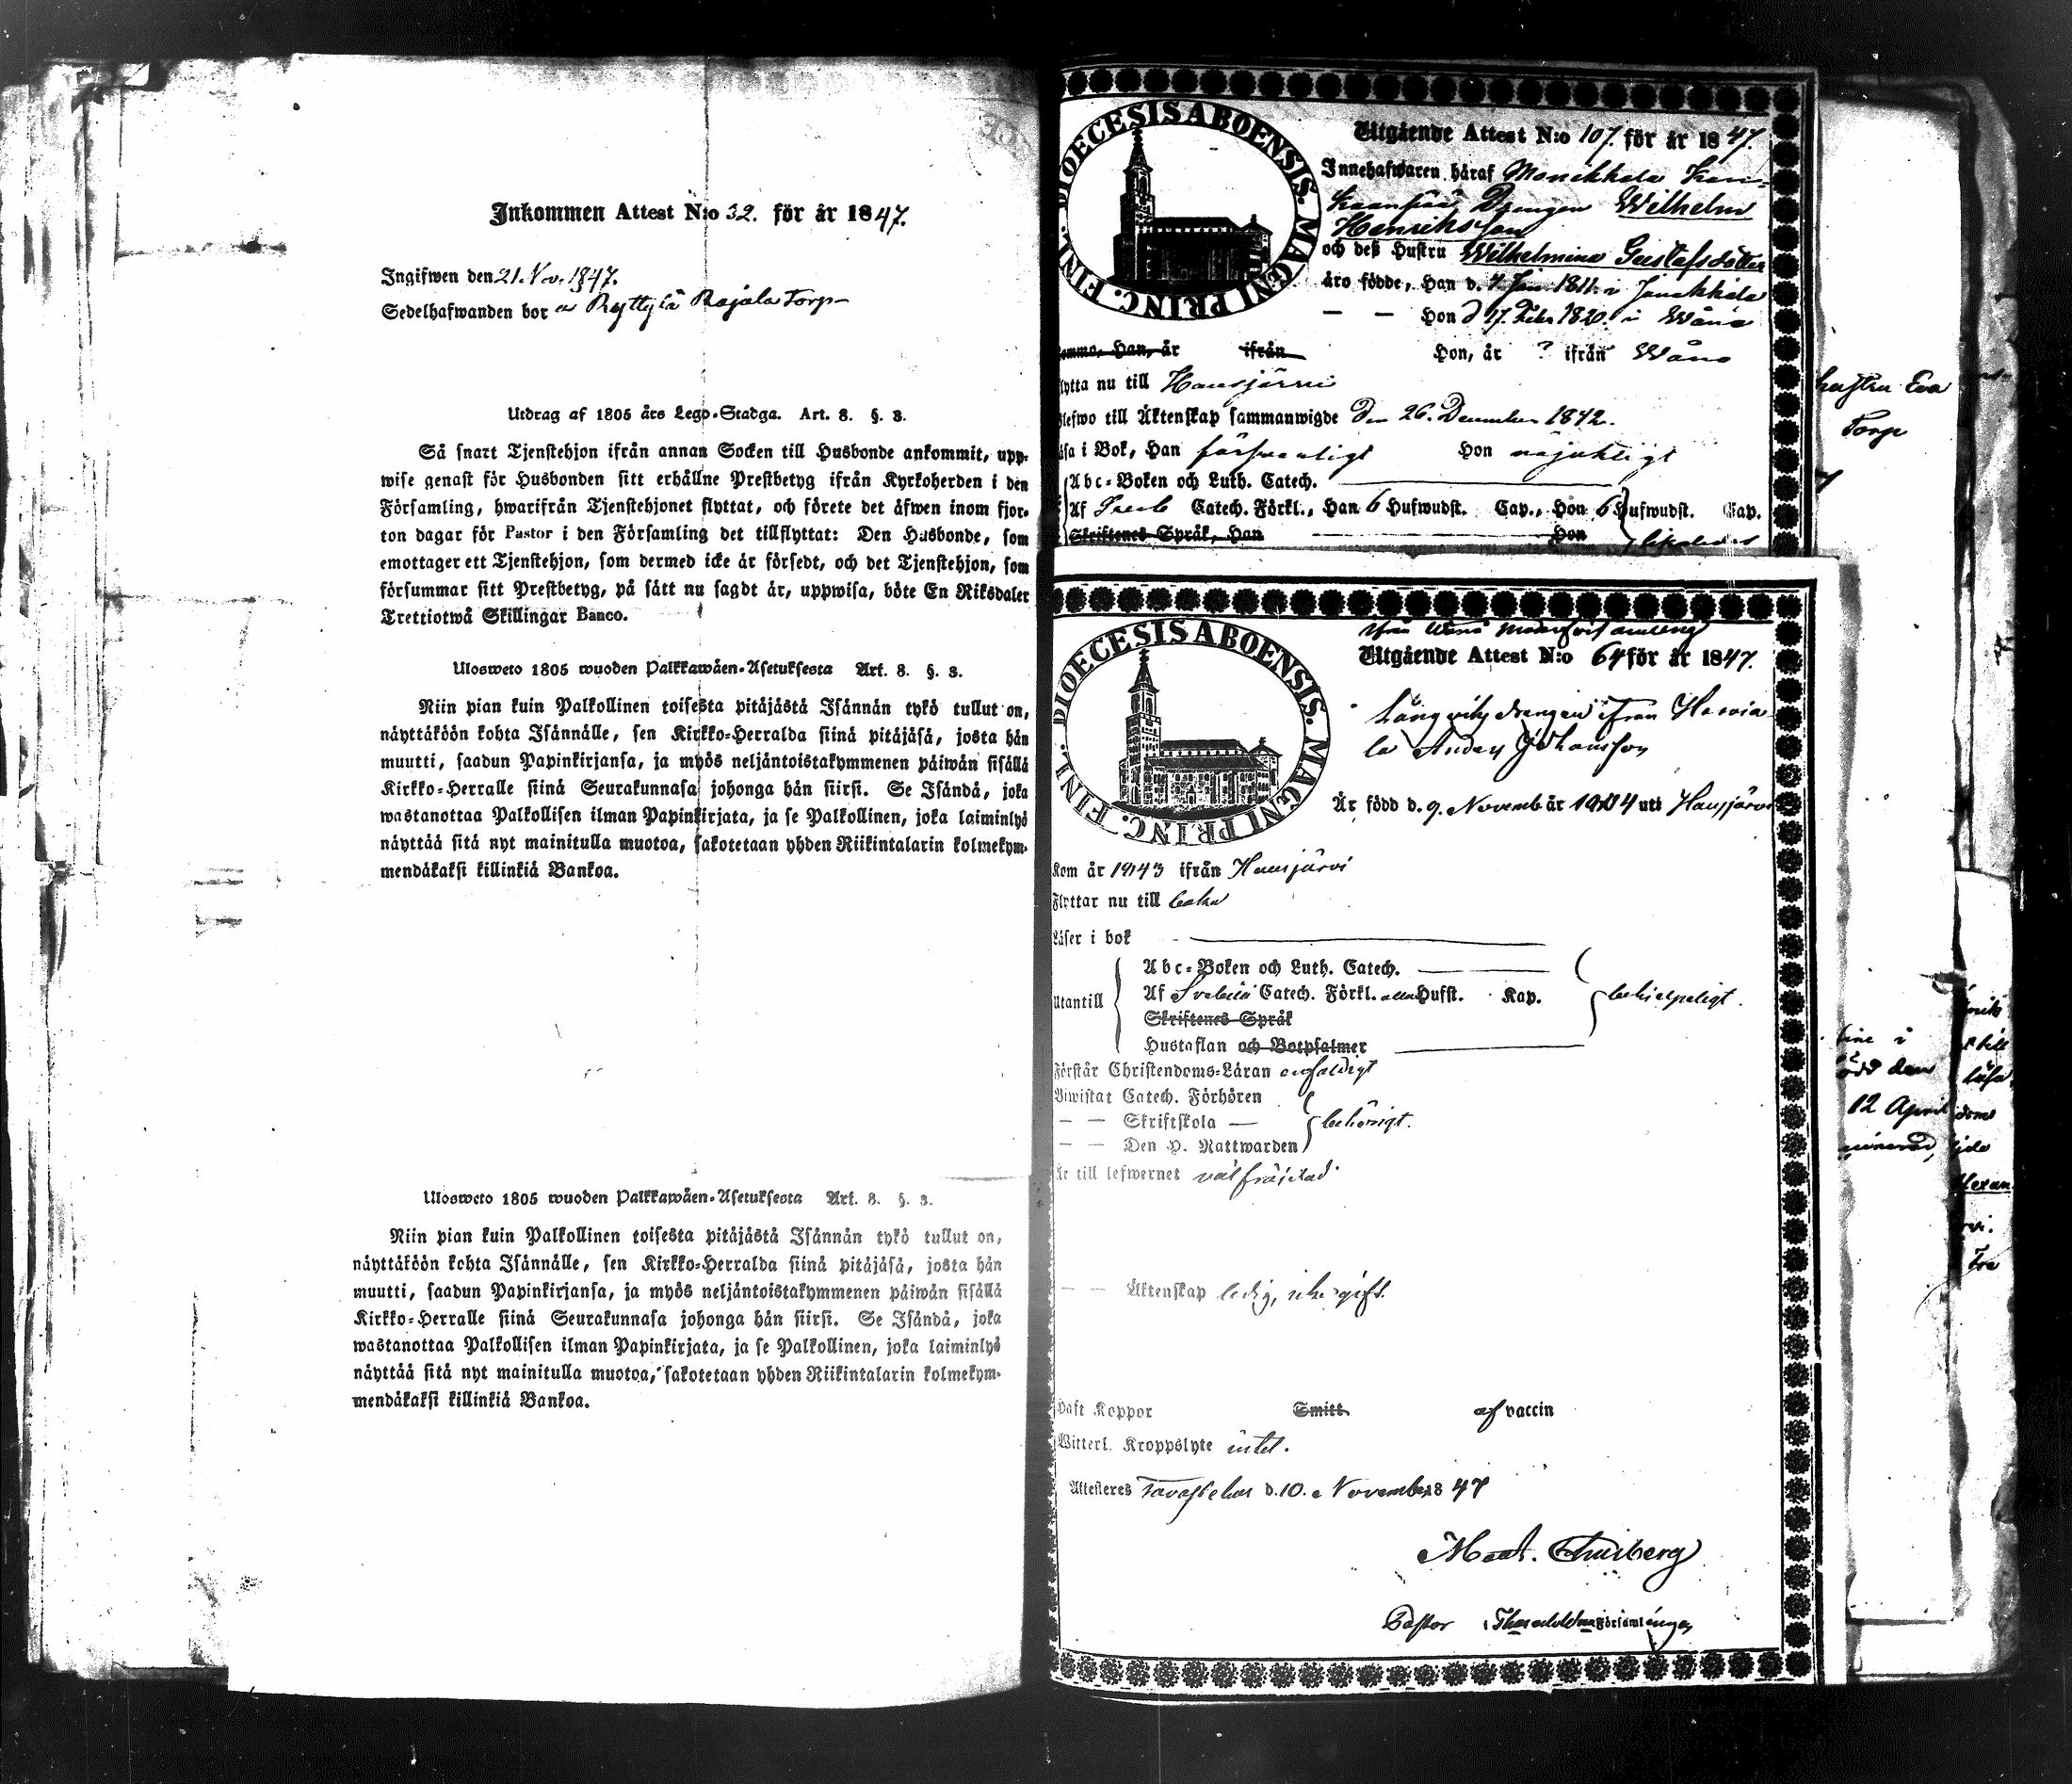 Inkommen Attest N:o 32. för år 1847.
Ingifwen den 21. Nov. 1847.
Sedelhafwanden bor a Ryttylä Rajala Torp
Utdrag af 1805 års Lego-Stadga. Art. 8. §. 3.
Så snart Tjenstehjon ifrån annan Socken till Husbonde ankommit, upp-
wise genast för Husbonden sitt erhållne Prestbetyg ifrån Kyrkoherden i den
Församling, hwarifrån Tjenstehjonet flyttat, och förete det äfwen inom fjor-
ton dagar för Pastor i den Församling det tillflyttat: Den Husbonde, som
emottager ett Tjenstehjon, som dermed icke är försedt, och det Tjenstehjon, som
försummar sitt Prestbetyg, på sätt nu sagdt är, uppwisa, böte En Riksdaler
Trettiotwå Skillingar Banco.
Ulosweto 1805 wuoden Palkkawäen-Asetuksesta Art. 8. §. 3.
Niin pian kuin Palkollinen toisesta pitäjästä Isännän tykö tullut on,
näyttäköön kohta Isännälle, sen Kirkko-Herralda siinä pitäjäsä, josta hän
muutti, saadun Papinkirjansa, ja myös neljäntoistakymmenen päiwän sisällä
Kirkko-Herralle siinä Seurakunnasa johonga hän siirsi. Se Isändä, joka
wastanottaa Palkollisen ilman Papinkirjata, ja se Palkollinen, joka laiminlyö
näyttää sitä nyt mainitulla muotoa, sakotetaan yhden Riikintalarin kolmekym-
mendäkaksi killinkiä Bankoa.
Ulosweto 1805 wuoden Palkkawäen-Asetuksesta Art. 8. §. 3.
Niin pian kuin Palkollinen toisesta pitäjästä Isännän tykö tullut on,
näyttäköön kohta Isännälle, sen Kirkko-Herralda siinä pitäjäsä, josta hän
muutti, saadun Papinkirjansa, ja myös neljäntoistakymmenen päiwän sisällä
Kirkko-Herralle siinä Seurakunnasa johonga hän siirsi. Se Isändä, joka
wastanottaa Palkollisen ilman Papinkirjata, ja se Palkollinen, joka laiminlyö
näyttää sitä nyt mainitulla muotoa, sakotetaan yhden Riikintalarin kolmekym-
mendäkaksi killinkiä Bankoa.
DIOECESIS ABOENSIS. MAGNI PRINC. FINL.
Utgående Attest N:o 107. för år 1847.
Innehafwaren häraf
Drengen Wilhelm
Henriksson
och deß Hustru Wilhelmina Gustafsdotter
äro födde, Han d. 4 Jan 1811. i Janakkala
— — Hon d 17. Febr 1820. i Wånå
komma, Han, år ifrån Hon, år ? ifrån Wånå
flytta nu till Hausjärvi
Blefwo till Äktenskap sammanwigde den 26. December 1842.
läsa i Bok, Han förswarligt Hon nöjaktigt
Abc-Boken och Luth. Catech.
Af Sveb Catech. Förkl., Han 6 Hufwudst. Cap., Hon 6 Hufwudst. Cap.
Skriftenes Språk, Han Hon
DIOECESIS ABOENSIS. MAGNI PRINC. FINL.
ifrån Wånå Moderförsamling
Utgående Attest N:o 64 för år 1847.
drengen ifrån Harvia-
la Anders Johansson
Är född d. 9. Novemb år 1804 uti Hausjärvi
Kom år 1843 ifrån Hausjärvi
Flyttar nu till baka
Läser i bok
Utantill
Abc-Boken och Luth. Catech.
Af Svebilii Catech. Förkl. alla Hufst. Kap. behjelpeligt.
Skriftenes Språk
Hustaflan och Botpsalmer
Förstår Christendoms-Läran enfaldigt
Biwistat Catech. Förhören
— — Skriftskola — behörigt.
— — Den H. Nattwarden
Är till lefwernet väl fräjdad
— — Äktenskap ledig, icke gift.
Haft Koppor Smitt af vaccin
Witterl. Kroppslyte intet.
Attesteres Tavastehus d. 10. November 1847
Pastor Församlingen
hustru Eva
Torp
12 April